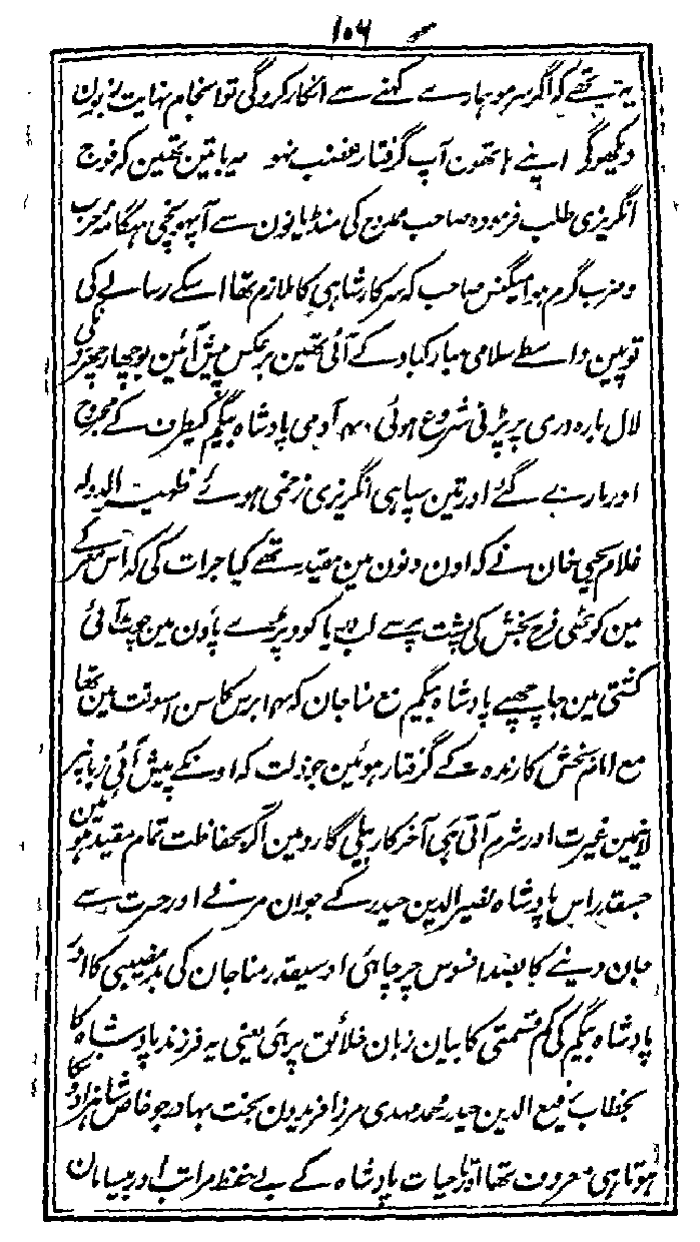 ۱۰۶
یہ تھے کہ اگر سرمو ہمارے کہنے سے انکار کروگی تو انجام نہایت زبون
دیکھوگی اپنے ہاتھون آپ گرفتار غضب نہو یہ باتین تھین کہ فوج
انگریزی طلب فرمودہ صاحب ممدوح کی منڈیانون سے آپہونچی ہنگامہ حرب
و ضرب گرم ہوا میگنس صاحب کہ سرکار شاہی کا ملازم تھا اسکے رسالے کی
توپین واسطے سلامی مبارکباد کے آئی تھین برعکس پیش آئین بوچھار چھرونکی
لال بارہ دری پر پڑنی شروع ہوئی ۴۰ آدمی پادشاہ بیگم کیطرف کے مجروح
اور مارے گئے اور تین سپاہی انگریزی زخمی ہوئے ظہیر الدولہ
غلام یحیی خان نے کہ اون دنون مین مقید تھے کیا جرات کی کہ اس معرکے
مین کوٹھی فرح بخش کی پشت پر سے لب دریا کود پڑے پاون مین چوٹ آئی
کشتی مین جا چھپے پادشاہ بیگم مع مناجان کہ ۱۴ برس کا سن اسوقت مین تھا
مع امام بخش کارندہ کے گرفتار ہوئین جو ذلت کہ اونکے پیش آئی زبانپر
لانیمین غیرت اور شرم آتی ہی آخرکار بیلی گارد مین آکر بحفاظت تمام مقید ہوئین
جسقدر اس پادشاہ نصیر الدین حیدر کے جوان مرنے اور حسرت سے
جان دینے کا بعد افسوس چرچا ہی اوسیقدر مناجان کی بد نصیبی کا اور
پادشاہ بیگم کی کم قسمتی کا بیان زبان خلائق پر ہی یعنی یہ فرزند پادشاہ کا
بخطاب رفیع الدین حیدر محمد مہدی مرزا فریدون بخت بہادر جو خاص شاہزادونکا
ہوتا ہی معروف تھا اور تا حیات پادشاہ کے بے حفظ مراتب اور بیسامان